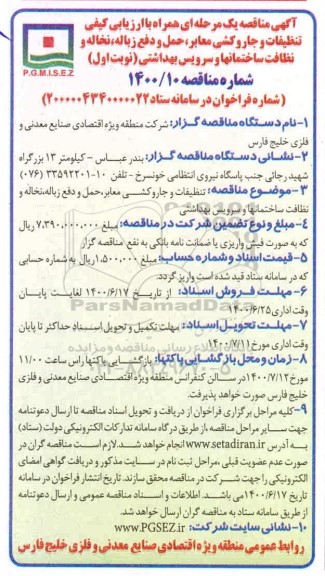 آگهی مناقصه یک مرحله ای همراه با ارزیابی کیفی
تنظیفات و جاروکشی معابر، حمل و دفع زباله، نخاله و
نظافت ساختمانها و سرویس بهداشتی (نوبت اول)
P.G.M.I.S.E.Z
شماره مناقصه ۱۴۰۰/۱۰
(شماره فراخوان در سامانه ستاد ۲۰۰۰۰۰۴۳۴۰۰۰۰۰۲۲)
۱-نام دستگاه مناقصه گزار: شرکت منطقه ویژه اقتصادی صنایع معدنی و
فلزی خلیج فارس
۲-نشانی دستگاه مناقصه گزار: بندر عباس - کیلومتر ۱۳ بزرگراه
شهید رجائی جنب پاسگاه نیروی انتظامی خونسرخ - تلفن ۱۰-۳۳۵۹۲۲۰۱ (۰۷۶)
۳-موضوع مناقصه: تنظیفات و جاروکشی معابر، حمل و دفع زباله، نخاله و
نظافت ساختمانها و سرویس بهداشتی
۴-مبلغ و نوع تضمین شرکت در مناقصه: مبلغ ۷,۳۹۰,۰۰۰,۰۰۰ ریال
که به صورت فیش واریزی یا ضمانت نامه بانکی به نفع مناقصه گزار
۵-قیمت اسناد و شماره حساب: مبلغ ۱,۵۰۰,۰۰۰ ریال به شماره حسابی
که در سامانه ستاد قید شده است واریز گردد.
۶-مهلت فروش اسناد: از تاریخ ۱۴۰۰/۶/۱۷ لغایت پایان
وقت اداری ۱۴۰۰/۶/۲۵
۷-مهلت تحویل اسناد: مهلت تکمیل و تحویل اسناد حداکثر تا پایان
وقت اداری مورخ ۱۴۰۰/۷/۱۱
۸-زمان و محل بازگشایی پاکتها: بازگشایی پاکتها راس ساعت ۱۱/۰۰
مورخ ۱۴۰۰/۷/۱۲ در سالن کنفرانس منطقه ویژه اقتصادی صنایع معدنی و فلزی
خلیج فارس صورت خواهد پذیرفت.
۹-کلیه مراحل برگزاری فراخوان از دریافت و تحویل اسناد مناقصه تا ارسال دعوتنامه
جهت سایر مراحل مناقصه، از طریق درگاه سامانه تدارکات الکترونیکی دولت (ستاد)
به آدرس www.setadiran.ir انجام خواهد شد. لازم است مناقصه گران در
صورت عدم عضویت قبلی، مراحل ثبت نام در سایت مذکور و دریافت گواهی امضای
الکترونیکی را جهت شرکت در مناقصه محقق سازند. تاریخ انتشار فراخوان در سامانه
تاریخ ۱۴۰۰/۶/۱۷ می باشد. اطلاعات و اسناد مناقصه عمومی و ارسال دعوتنامه
از طریق سامانه ستاد به مناقصه گران ارسال خواهد شد.
۱۰-نشانی سایت شرکت: www.PGSEZ.ir
روابط عمومی منطقه ویژه اقتصادی صنایع معدنی و فلزی خلیج فارس